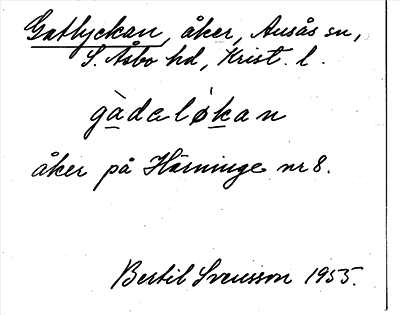 Gatlyckan, åker, Ausås sn,
S. Åsbo hd, Krist. l.
gàdaløkan
åker på Härninge nr 8.
Bertil Svensson 1955.